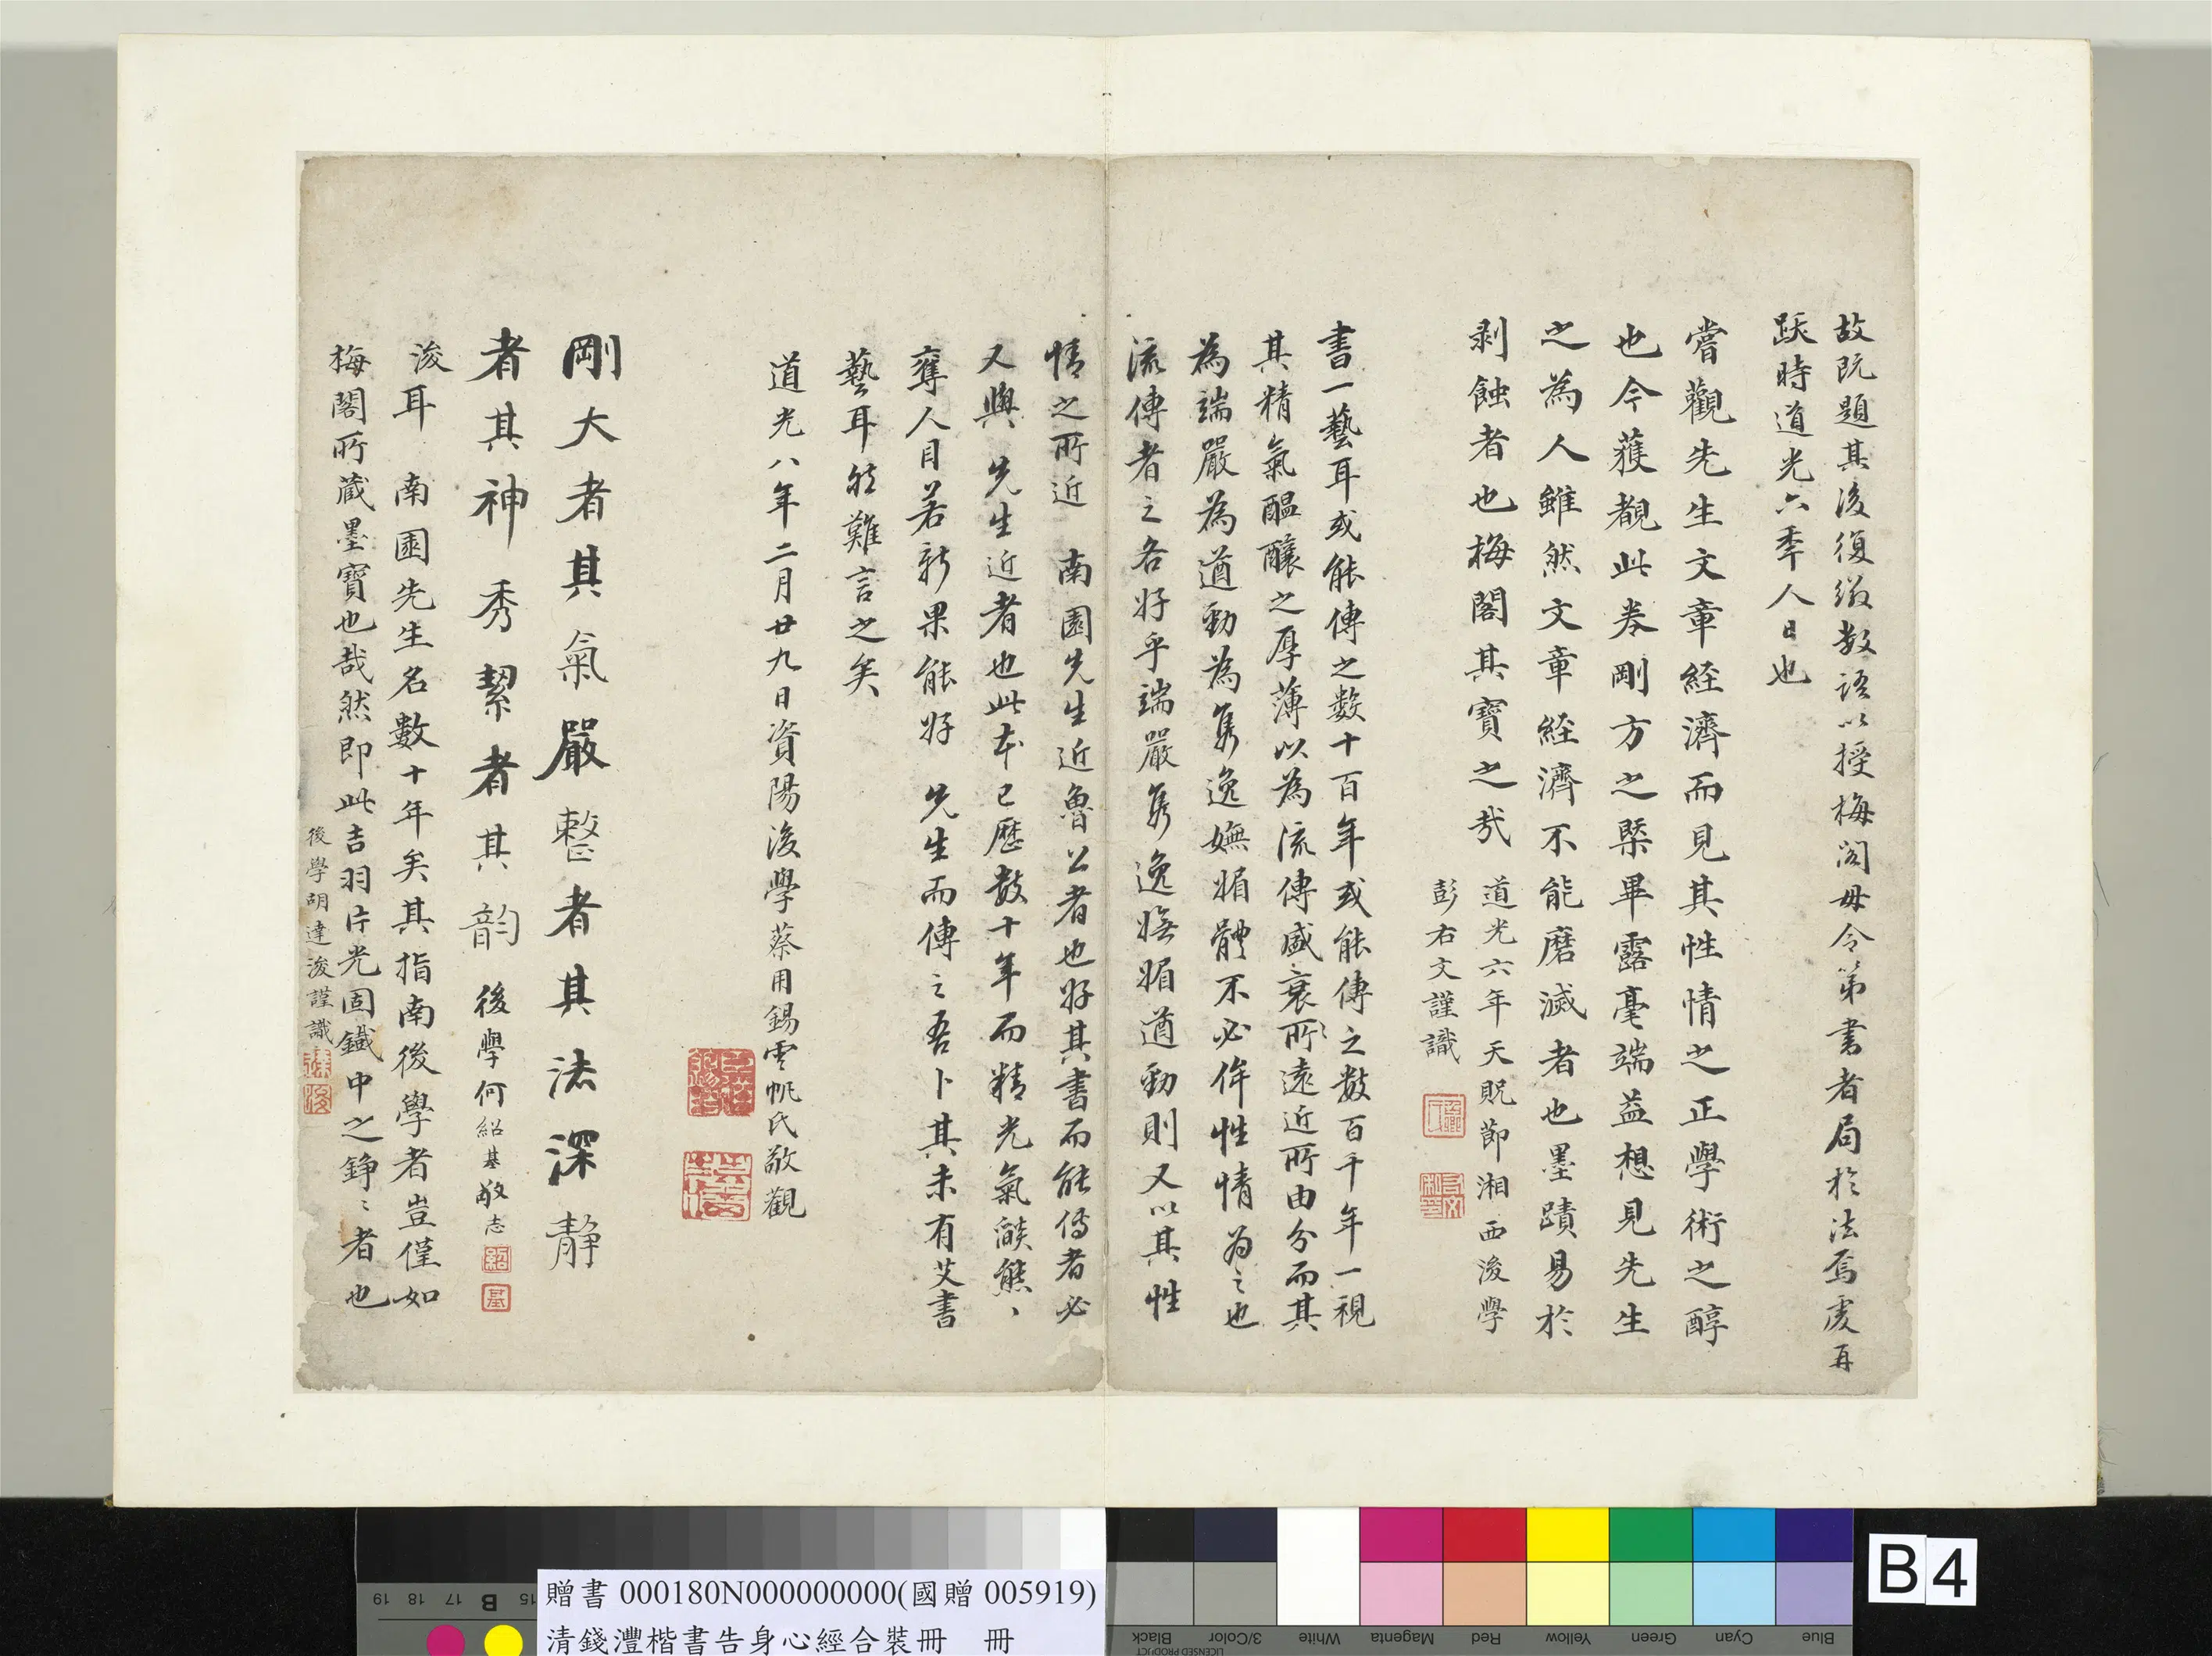 故既題其後復綴数語以授梅閣毋令第書者局於法焉虔再
跋時道光六秊人日也
嘗觀先生文章経濟而見其性情之正學術之醇
也今獲覩此券剛方之槩畢露毫端益想見先生
之為人雖然文章経濟不能磨滅者也墨蹟易於
剥蝕者也梅閣其寶之哉
道光六年天貺節湘西後學
彭右文謹識
書一藝耳或能傳之數十百年或能傳之數百千年一視
其精氣醖釀之厚薄以為流傳盛衰所遠近所由分而其
為端嚴為遒勁為雋逸嫵媚體不必侔性情為之也
流傳者之各好乎端嚴雋逸嫵媚遒勁則又以其性
情之所近 南園先生近魯公者也好其書而能傳者必
又與 先生近者也此本已歷數十年而精光氣燄熊〻
奪人目若新果能好 先生而傳之吾卜其未有艾書
藝耳能難言之矣
道光八年二月廿九日資陽後學蔡用錫雲帆氏敬觀
剛大者其氣嚴整者其法深靜
者其神秀絜者其韵 後學何紹基敬志
紹
基
浚耳 南園先生名數十年矣其指南後學者豈僅如
梅閣所藏墨寶也哉然即此吉羽片光固鐵中之錚〻者也
後學胡達浚謹識
達浚
贈書 000180N000000000(國贈 005919)
清錢灃楷書告身心經合裝冊 冊
B4
Blue
Cyan
Green
Yellow
Red
Magenta
White
3/Color
Black
LICENSED PRODUCT
15
B
17
18
19